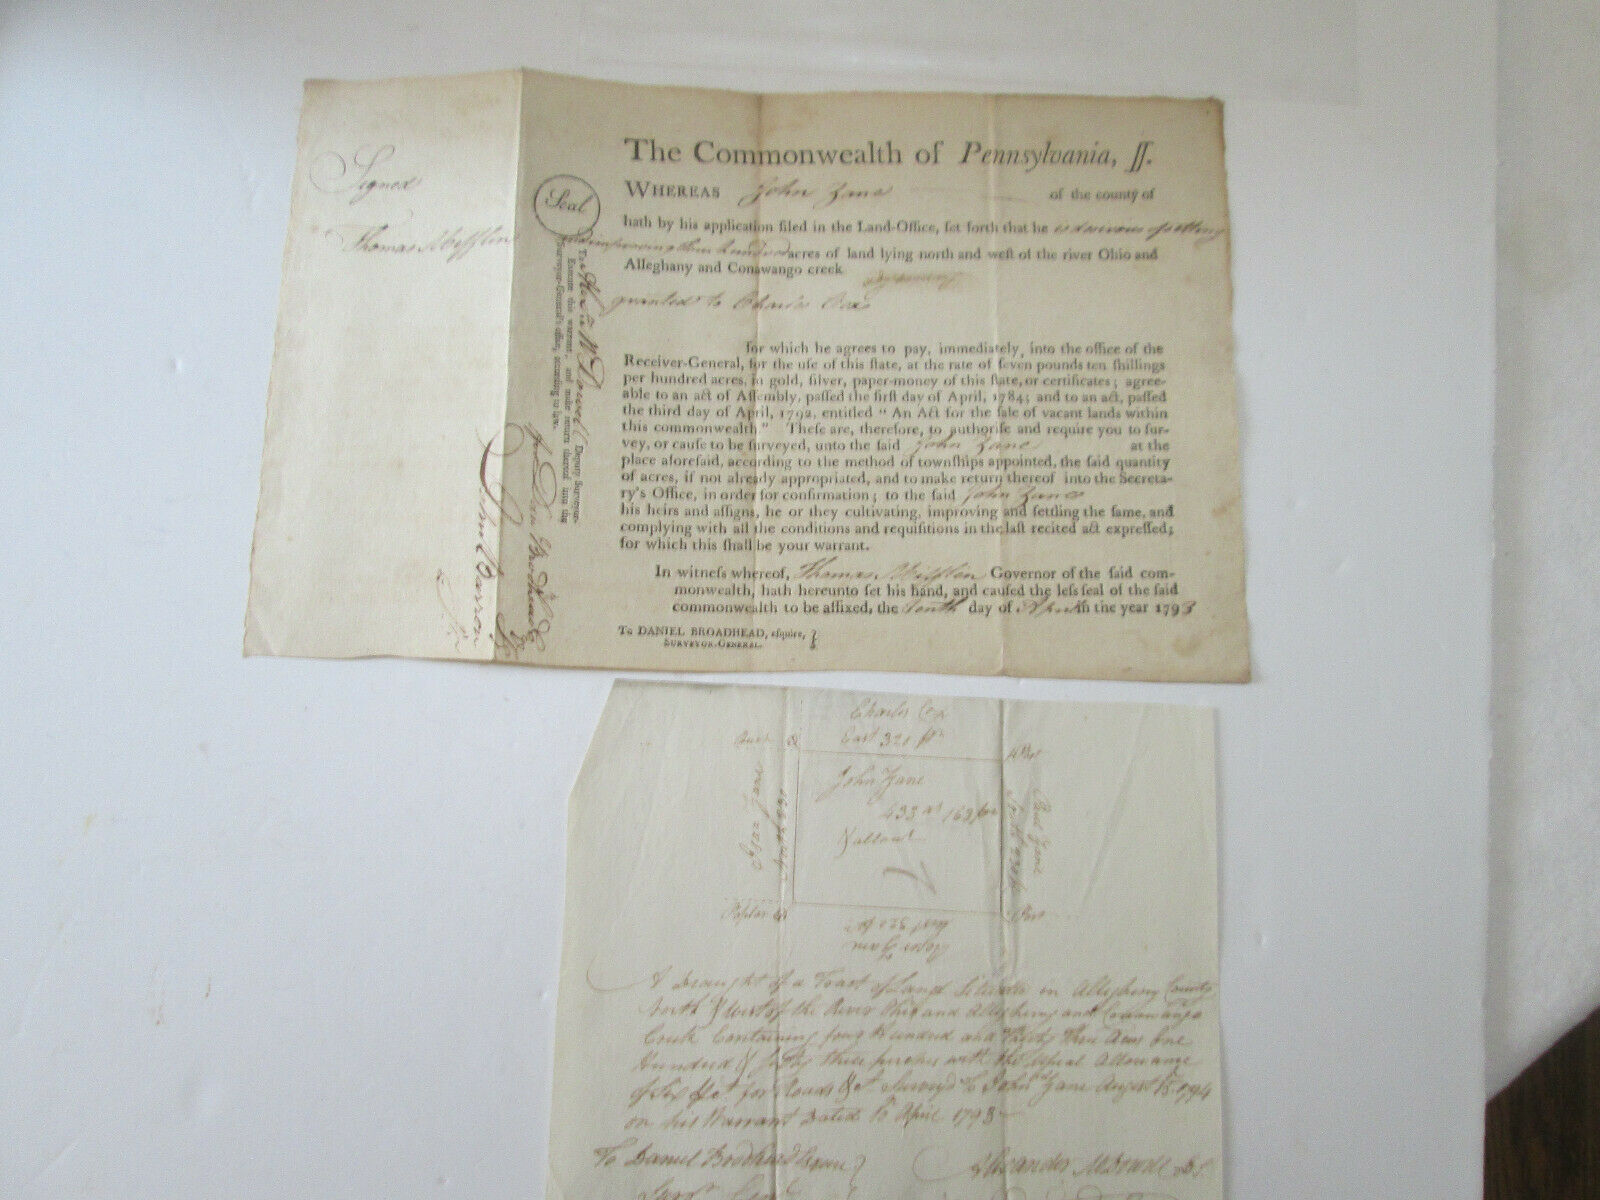 The Commonwealth of Pennsylvania, ſſ.
WHEREAS John Zane of the county of
hath by his application filed in the Land-Office, ſet forth that he is desirous of settling
and improving four hundred acres of land lying north and weſt of the river Ohio and
Alleghany and Conawango creek adjoining
granted to Charles Cox
for which he agrees to pay, immediately, into the office of the
Receiver-General, for the uſe of this ſtate, at the rate of ſeven pounds ten ſhillings
per hundred acres, in gold, ſilver, paper-money of this ſtate, or certificates; agree-
able to an act of Aſſembly, paſſed the firſt day of April, 1784; and to an act, paſſed
the third day of April, 1792, entitled " An Act for the ſale of vacant lands within
this commonwealth." Theſe are, therefore, to authoriſe and require you to ſur-
vey, or cauſe to be ſurveyed, unto the ſaid John Zane at the
place aforeſaid, according to the method of townſhips appointed, the ſaid quantity
of acres, if not already appropriated, and to make return thereof into the Secreta-
ry's Office, in order for confirmation; to the ſaid John Zane
his heirs and aſſigns, he or they cultivating, improving and ſettling the ſame, and
complying with all the conditions and requiſitions in the laſt recited act expreſſed;
for which this ſhall be your warrant.
In witneſs whereof, Thomas Mifflin Governor of the ſaid com-
monwealth, hath hereunto ſet his hand, and cauſed the leſs ſeal of the ſaid
commonwealth to be affixed, the Tenth day of April in the year 1793
To DANIEL BROADHEAD, eſquire,
SURVEYOR-GENERAL.
Signed
Thomas Mifflin
Seal
To Alexr. McDowell Deputy Surveyor.
Execute this warrant, and make return thereof into the
Surveyor-General's office, according to law.
for Dan Brodhead
John Barron
Charles Cox
East 320 prs
John Zane
433 as 163 prs
& allowce
Poplar
West 320 prs
A Draught of a Tract of Land Situate in Allegheny County
North & West of the River Ohio and Allegheny and Conawango
Creek Containing four Hundred and thirty three Acres One
Hundred & Sixty three perches with the Usual Allowance
of Six pCt. for Roads &c. Survey'd to John Zane August 15th 1794
on his Warrant Dated 10 April 1793
To Daniel Brodhead
Alexander McDowell DS